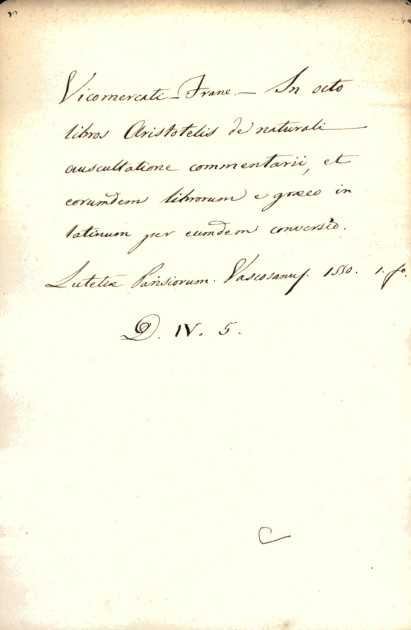 Vicomercati - Franc. - In octo
libros Aristotelis de naturali
auscultatione commentarii, et
eorumdem librorum e græco in
latinum per eumdem conversio.
Lutetiæ Parisiorum. Vascosanus. 1550. 1. fo.
D. IV. 5.
C